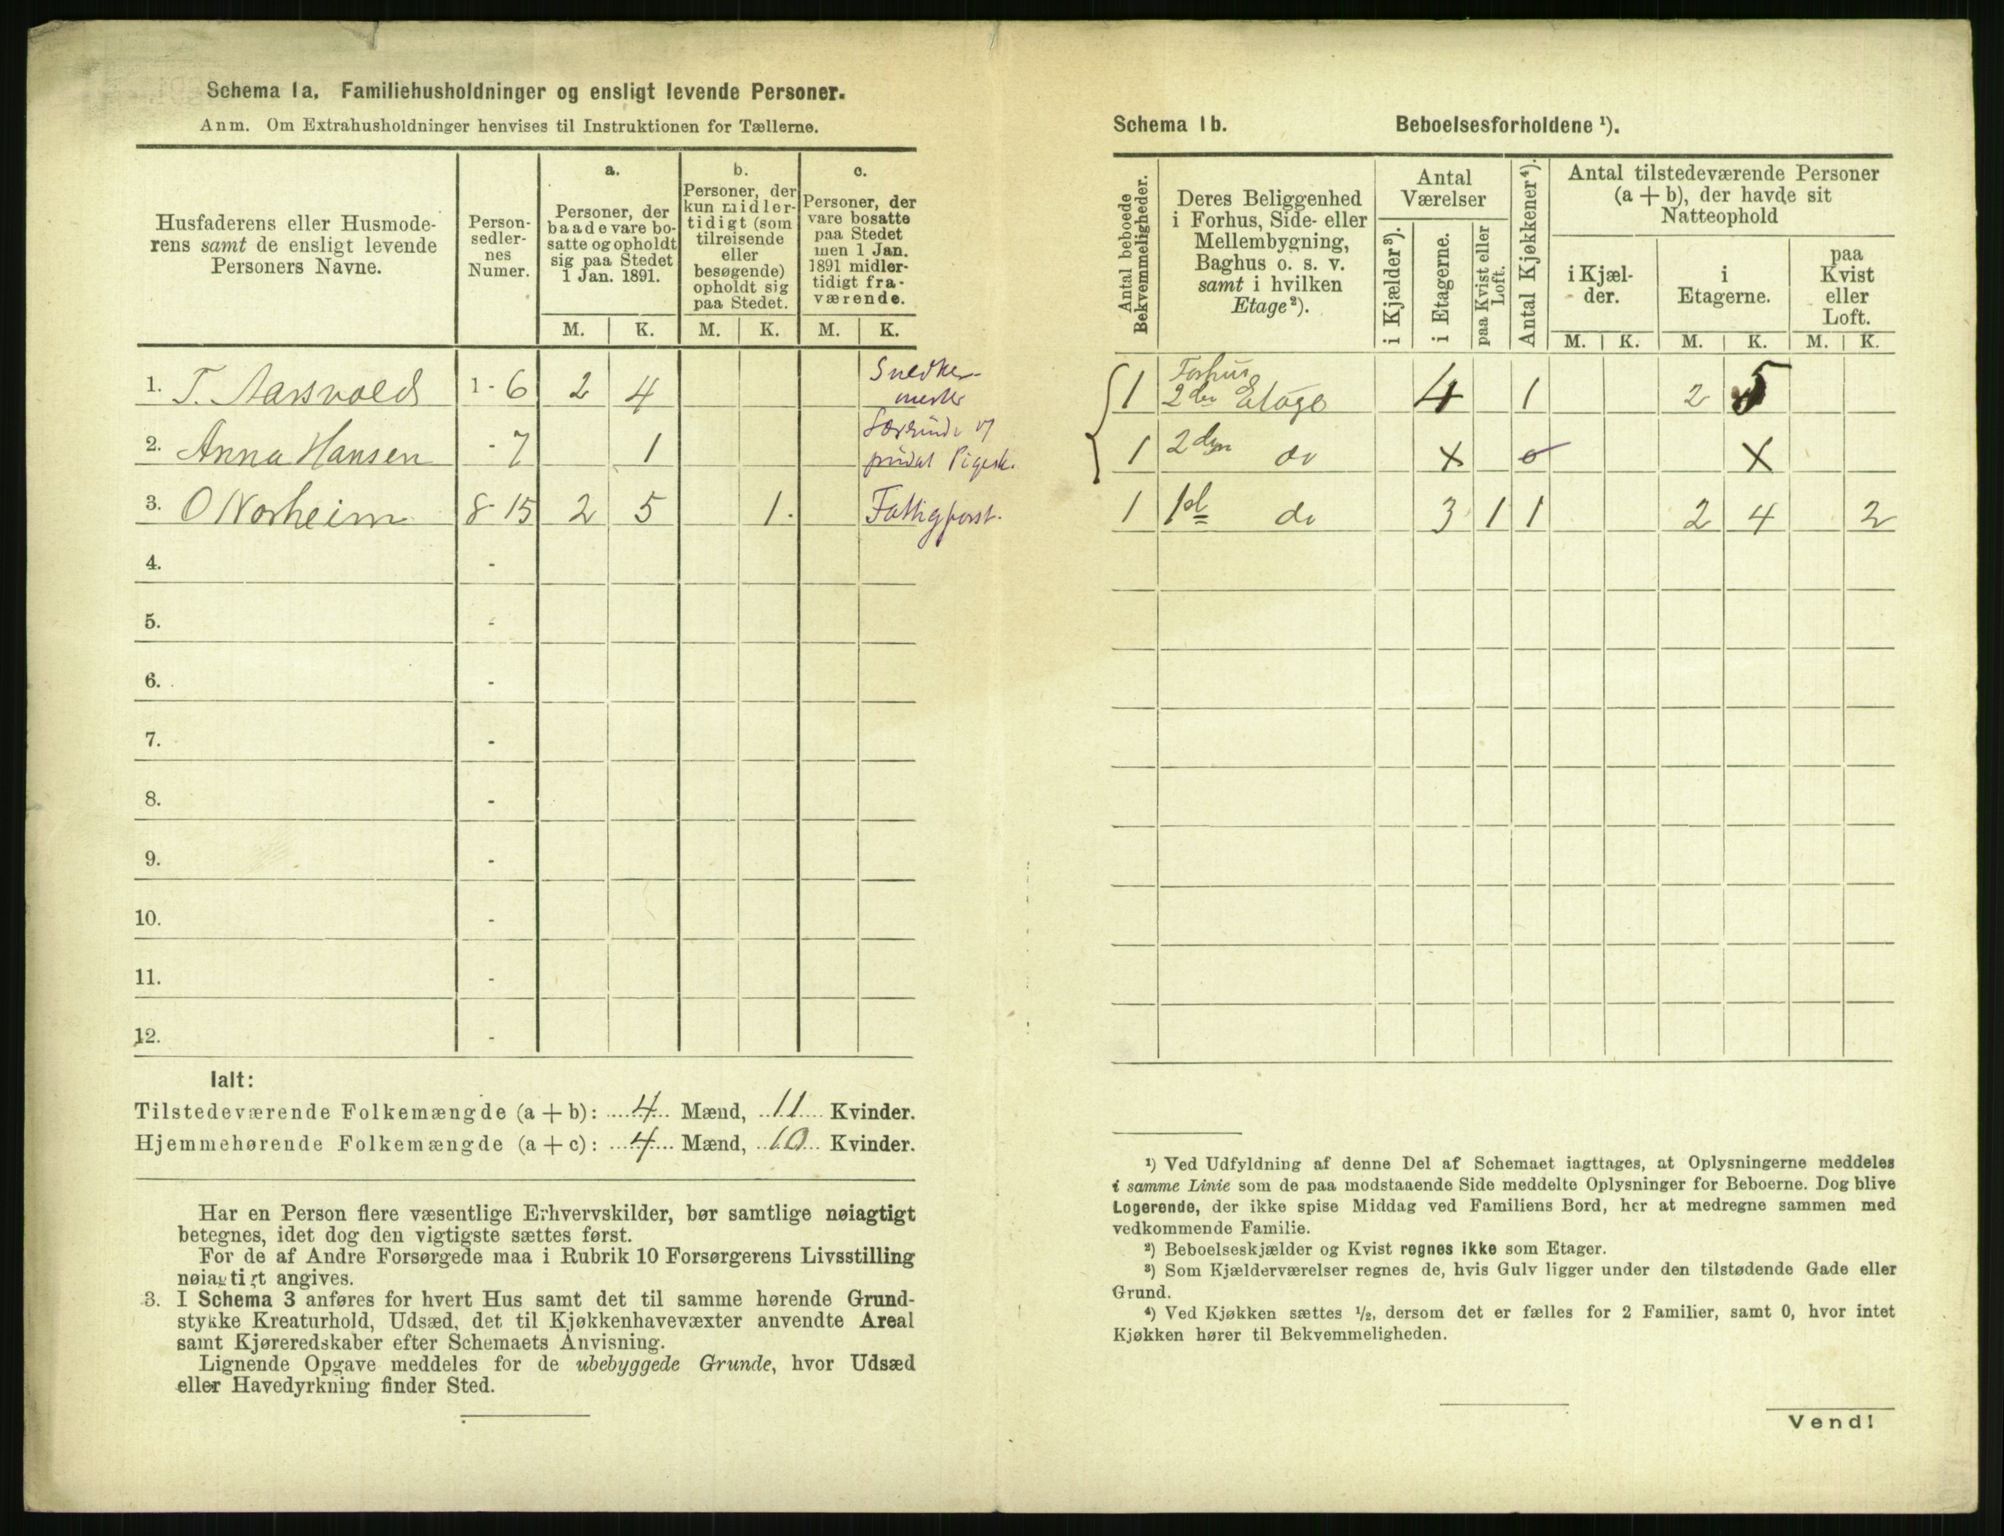 Schema 1a. Familiehusholdninger og ensligt levende Personer.
Anm. Om Extrahusholdninger henvises til Instruktionen for Tællerne.
Husfaderens eller Husmode-
rens samt de ensligt levende
Personers Navne.
Person-
sedler-
nes
Numer.
a.
Personer, der
baade vare bo-
satte og opholdt
sig paa Stedet
1 Jan. 1891.
b.
Personer, der
kun midler-
tidigt (som
tilreisende
eller
besøgende)
opholdt sig
paa Stedet.
c.
Personer, der
vare bosatte
paa Stedet
men 1 Jan.
1891 midler-
tidigt fra-
værende.
M. K. M. K. M. K.
1. T. Aarsvold 1 - 6 2 4 Snedker-
mester
2. Anna Hansen - 7 1
privat
3. O Norheim 8 - 15 2 5 1. Fattigforst.
4. -
5. -
6. -
7. -
8. -
9. -
10. -
11. -
12. -
Ialt:
Tilstedeværende Folkemængde (a + b): 4 Mænd, 11 Kvinder.
Hjemmehørende Folkemængde (a + c): 4 Mænd, 10 Kvinder.
Har en Person flere væsentlige Erhvervskilder, bør samtlige nøiagtigt
betegnes, idet dog den vigtigste sættes først.
For de af Andre Forsørgede maa i Rubrik 10 Forsørgerens Livsstilling
nøiagtigt angives.
3. I Schema 3 anføres for hvert Hus samt det til samme hørende Grund-
stykke Kreaturhold, Udsæd, det til Kjøkkenhavevæxter anvendte Areal
samt Kjøreredskaber efter Schemaets Anvisning.
Lignende Opgave meddeles for de ubebyggede Grunde, hvor Udsæd
eller Havedyrkning finder Sted.
Schema 1b. Beboelsesforholdene ¹).
Antal beboede
Bekvemmeligheder.
Deres Beliggenhed
i Forhus, Side- eller
Mellembygning,
Baghus o. s. v.
samt i hvilken
Etage²).
Antal
Værelser
i Kjælder³).
i Etagerne.
paa Kvist eller
Loft.
Antal Kjøkkener⁴).
Antal tilstedeværende Personer
(a + b), der havde sit
Natteophold
i Kjæl-
der.
i
Etagerne.
paa
Kvist
eller
Loft.
M. K. M. K. M. K.
1 Forhus
2den Etage 4 1 2 5
1 2den do x 0 x
1 1ste do 3 1 1 2 4 2
¹) Ved Udfyldning af denne Del af Schemaet iagttages, at Oplysningerne meddeles
i samme Linie som de paa modstaaende Side meddelte Oplysninger for Beboerne. Dog blive
Logerende, der ikke spise Middag ved Familiens Bord, her at medregne sammen med
vedkommende Familie.
²) Beboelseskjælder og Kvist regnes ikke som Etager.
³) Som Kjælderværelser regnes de, hvis Gulv ligger under den tilstødende Gade eller
Grund.
⁴) Ved Kjøkken sættes ½, dersom det er fælles for 2 Familier, samt 0, hvor intet
Kjøkken hører til Bekvemmeligheden.
Vend!